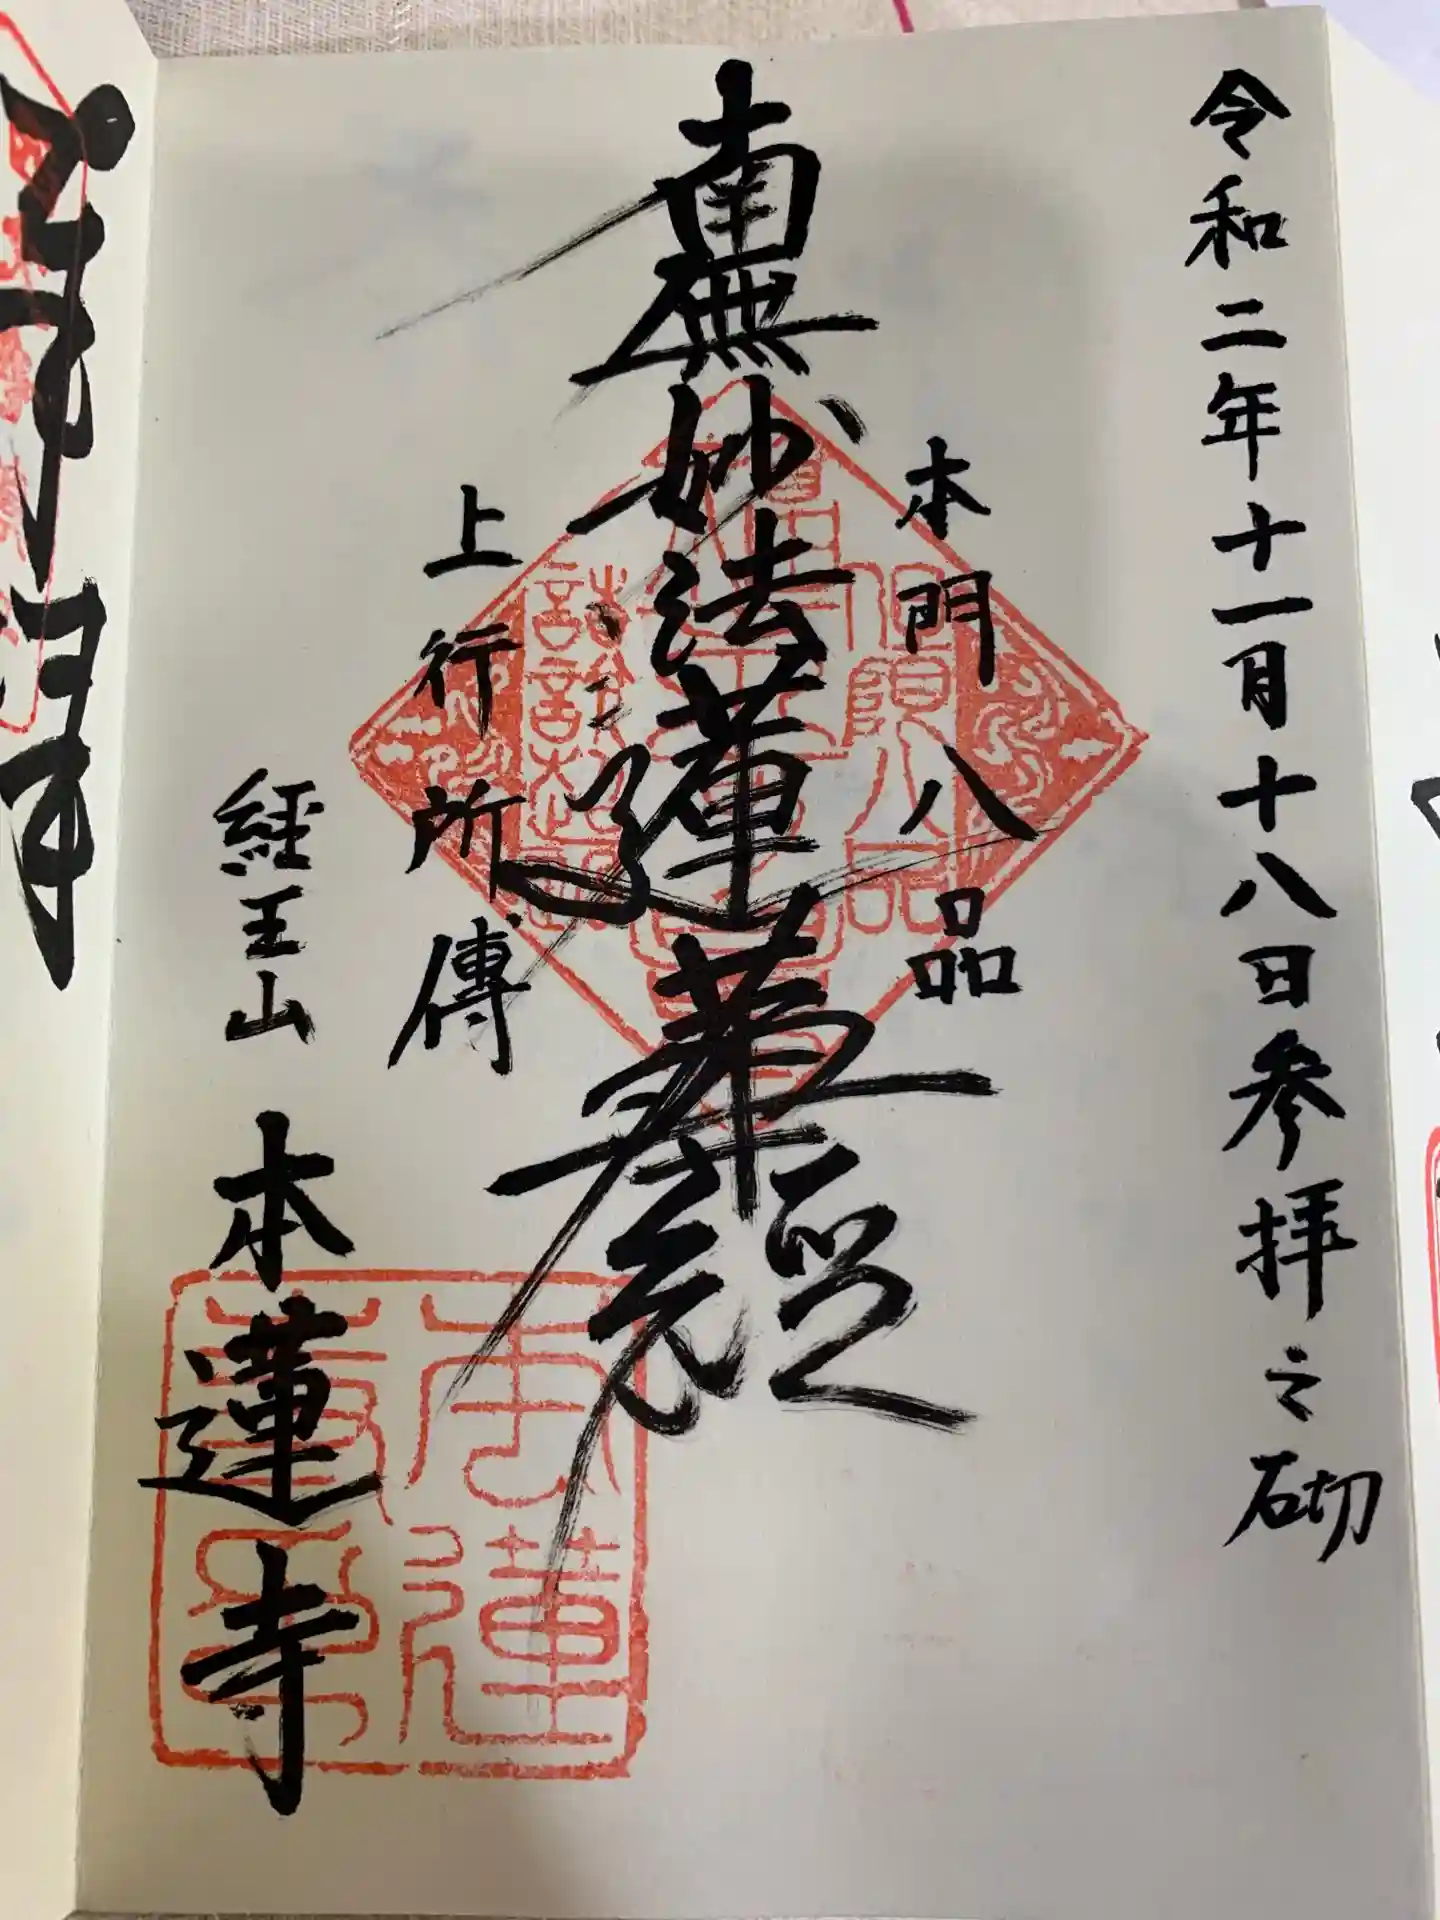 令和二年十一月十八日参拝之砌
本門八品
南無妙法蓮華経
上行所傳
経王山
本蓮寺
本蓮寺印